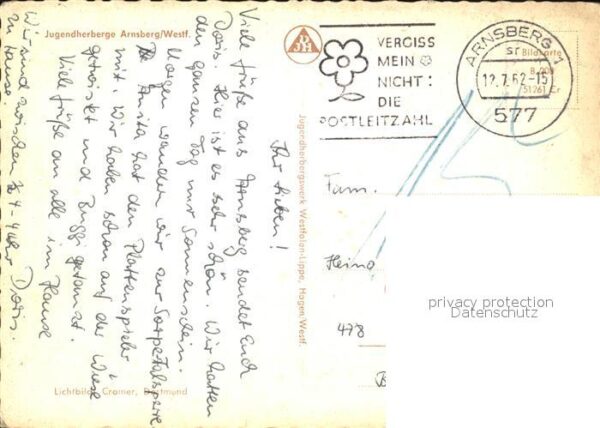 Jugendherberge Arnsberg/Westf.
DJH
VERGISS
MEIN
NICHT:
DIE
POSTLEITZAHL
ARNSBERG 1
sr
12.7.62-15
577
Bildkarte
51261 Cr
Ihr Lieben!
Viele Grüße aus Arnsberg sendet Euch
Doris. Hier ist es sehr schön. Wir hatten
den ganzen Tag nur Sonnenschein.
Morgen wandern wir zur Sorpetalsperre.
Anita hat den Plattenspieler
mit. Wir haben schon auf der Wiese
getwistet und getanzt.
Viele Grüße an alle im Hause
Doris.
Wir sind zwischen 4 Uhr
zu Hause
Jugendherbergswerk Westfalen-Lippe, Hagen/Westf.
Fam.
Heino
478
privacy protection
Datenschutz
Lichtbild: Cramer, Dortmund